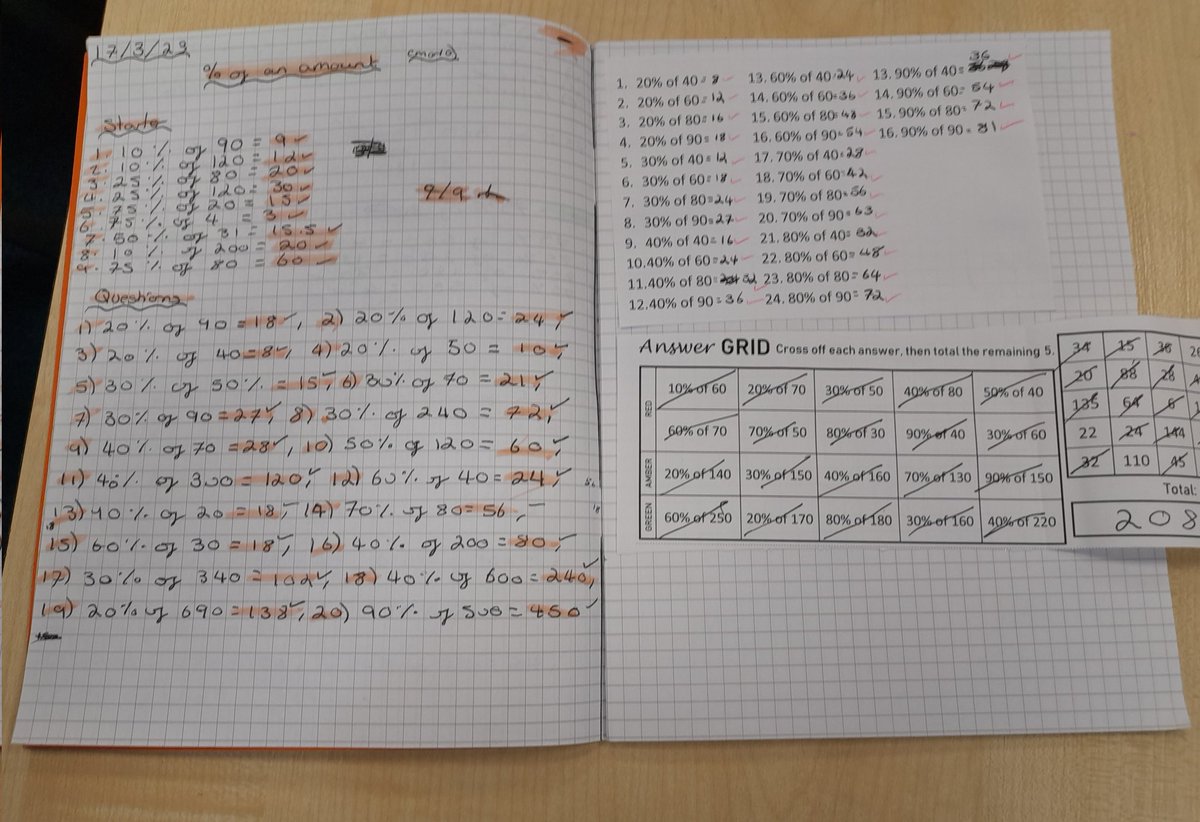 17/3/23
% of an amount
Starter
1. 10 % of 90 = 9
2. 10 % of 120 = 12
3. 25 % of 80 = 20
4. 25 % of 120 = 30
5. 75 % of 20 = 15
6. 75 % of 4 = 3
7. 50 % of 31 = 15.5
8. 10 % of 200 = 20
9. 75 % of 80 = 60
9/9
Questions
1) 20% of 90 = 18, 2) 20% of 120 = 24,
3) 20% of 40 = 8, 4) 20% of 50 = 10,
5) 30% of 50% = 15, 6) 30% of 70 = 21,
7) 30% of 90 = 27, 8) 30% of 240 = 72,
9) 40% of 70 = 28, 10) 50% of 120 = 60,
11) 40% of 300 = 120, 12) 60% of 40 = 24,
13) 90% of 20 = 18, 14) 70% of 80 = 56,
15) 60% of 30 = 18, 16) 40% of 200 = 80,
17) 30% of 340 = 102, 18) 40% of 600 = 240,
19) 20% of 690 = 138, 20) 90% of 500 = 450
1. 20% of 40 = 8 13. 60% of 40 = 24 13. 90% of 40 = 36
2. 20% of 60 = 12 14. 60% of 60 = 36 14. 90% of 60 = 54
3. 20% of 80 = 16 15. 60% of 80 = 48 15. 90% of 80 = 72
4. 20% of 90 = 18 16. 60% of 90 = 54 16. 90% of 90 = 81
5. 30% of 40 = 12 17. 70% of 40 = 28
6. 30% of 60 = 18 18. 70% of 60 = 42
7. 30% of 80 = 24 19. 70% of 80 = 56
8. 30% of 90 = 27 20. 70% of 90 = 63
9. 40% of 40 = 16 21. 80% of 40 = 32
10. 40% of 60 = 24 22. 80% of 60 = 48
11. 40% of 80 = 32 23. 80% of 80 = 64
12. 40% of 90 = 36 24. 80% of 90 = 72
Answer GRID Cross off each answer, then total the remaining 5.
RED
10% of 60 20% of 70 30% of 50 40% of 80 50% of 40
60% of 70 70% of 50 80% of 30 90% of 40 30% of 60
AMBER
20% of 140 30% of 150 40% of 160 70% of 130 90% of 150
GREEN
60% of 250 20% of 170 80% of 180 30% of 160 40% of 220
34 15 36
20 88 28
135 64 6
22 24 144
32 110 45
Total:
208